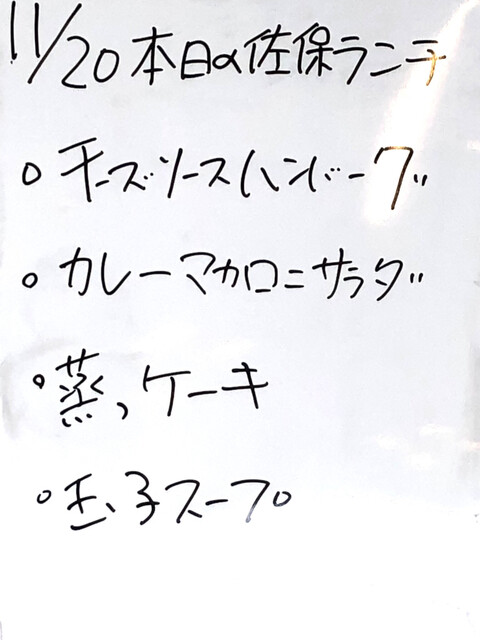 11/20本日の佐保ランチ
○チーズソースハンバーグ
○カレーマカロニサラダ
○蒸しケーキ
○玉子スープ